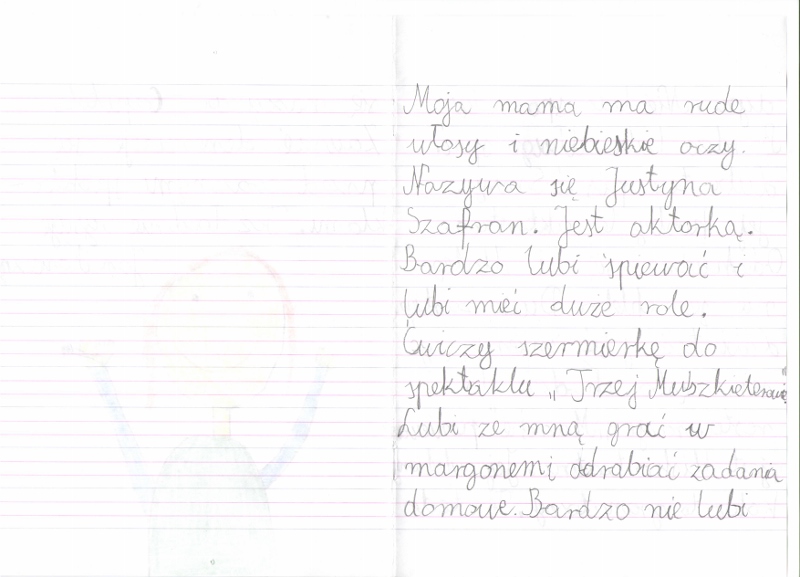 Moja mama ma rude
włosy i niebieskie oczy.
Nazywa się Justyna
Szafran. Jest aktorką.
Bardzo lubi śpiewać i
lubi mieć duże role.
Ćwiczy szermierkę do
spektaklu „Trzej Muszkieterowie"
Lubi ze mną grać w
margonem i odrabiać zadania
domowe. Bardzo nie lubi